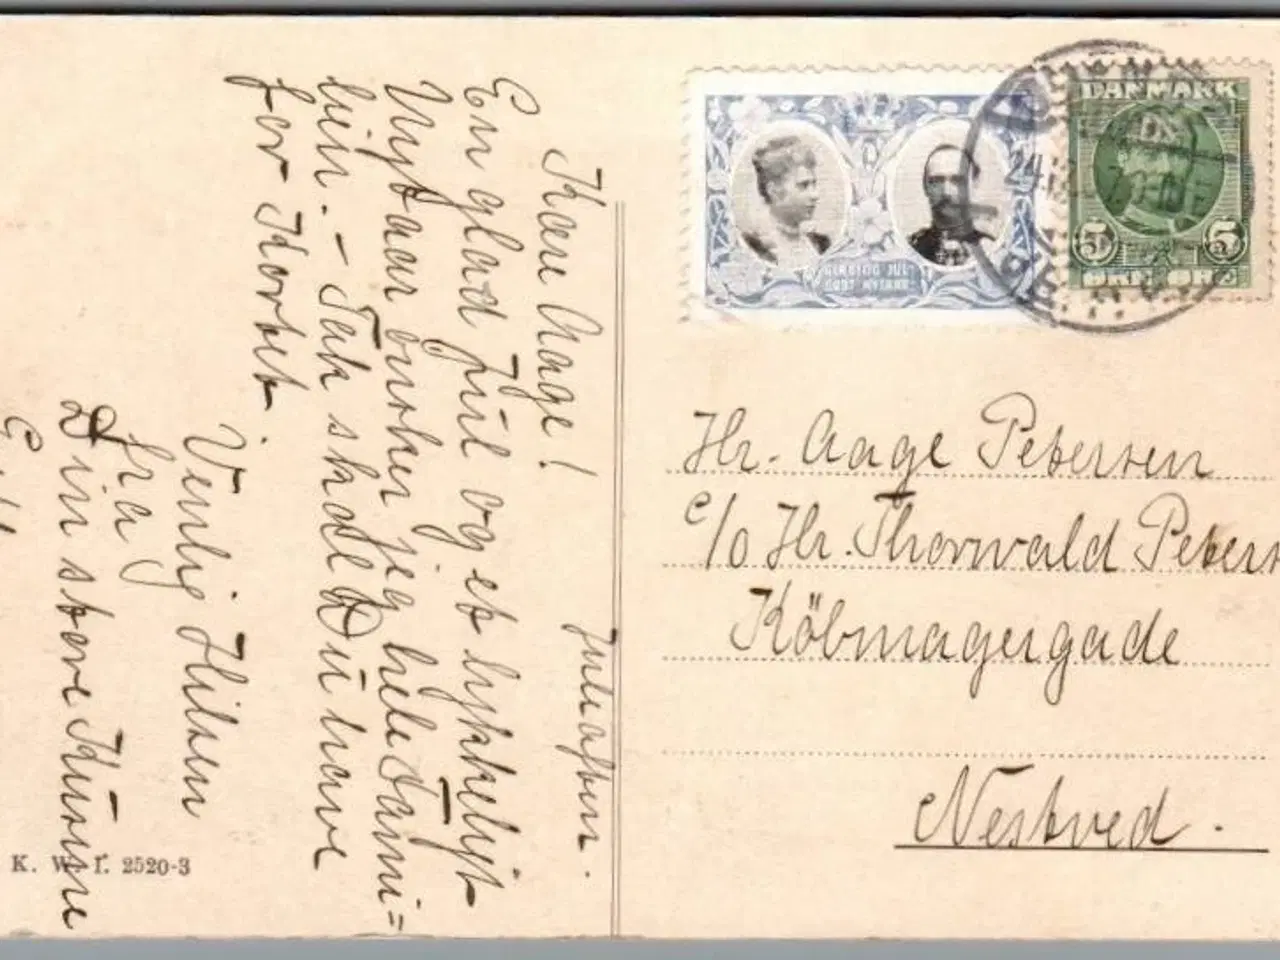 Juleaften.
Kære Aage!
En glad Jul og et lykkeligt
Nytaar ønsker jeg hele Fami=
lien. - Tak skal Du have
for Kortet.
Venlig Hilsen
fra
Din store Kusine
GLÆDELIG JUL
GODT NYTAAR
DANMARK
5 5
ØRE ØRE
Hr. Aage Petersen
c/o Hr. Thorvald Peters
Köbmagergade
Nestved.
K. W. I. 2520-3